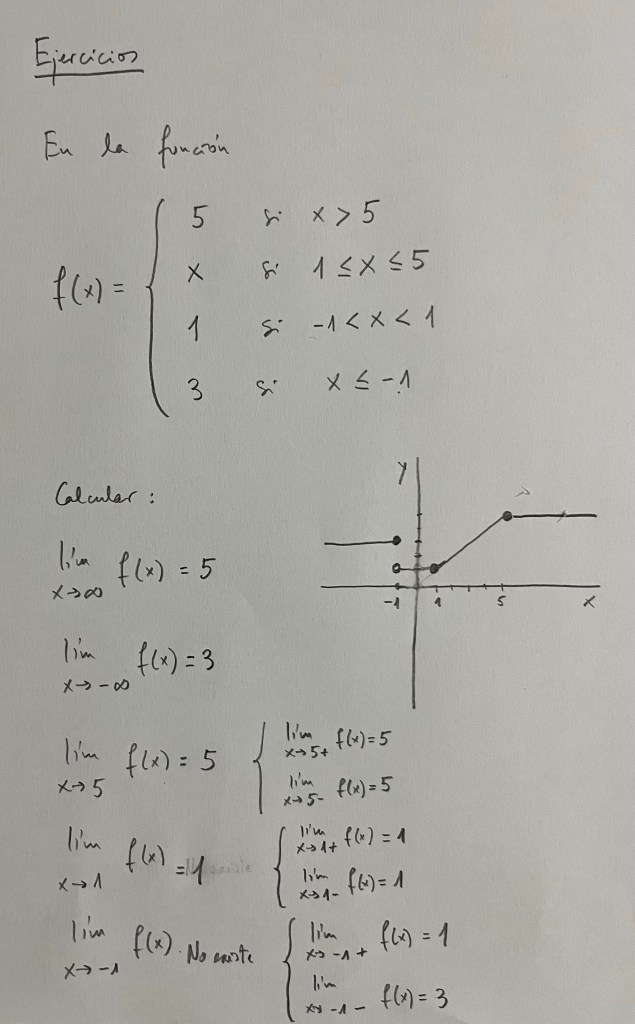 Ejercicios
En la función
f(x) = {
5 si x > 5
x si 1 ≤ x ≤ 5
1 si -1 < x < 1
3 si x ≤ -1
Calcular :
y
-1 1 5 x
lím x→∞ f(x) = 5
lím x→-∞ f(x) = 3
lím x→5 f(x) = 5 { lím x→5+ f(x) = 5
lím x→5- f(x) = 5
lím x→1 f(x) = 1 { lím x→1+ f(x) = 1
lím x→1- f(x) = 1
lím x→-1 f(x). No existe { lím x→-1+ f(x) = 1
lím x→-1- f(x) = 3